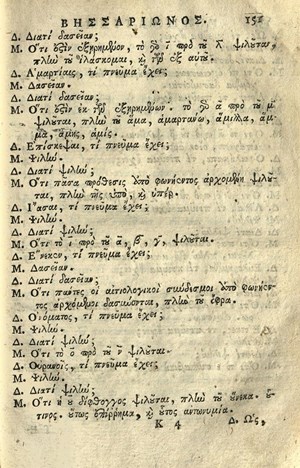 ΒΗΣΣΑΡΙΩΝΟΣ. 151
Δ. Διατί δασεῖαν;
Μ. Ὅτι ὅσιν ἐξῃρημένον, τὸ γὸ ι πρὸ τοῦ λ ψιλοῦται,
πλὴν τοῦ ἱλάσκομαι, καὶ τῶν ἐξ αὐτοῦ.
Δ. Ἁμαρτίαις, τί πνεῦμα ἔχει;
Μ. Δασεῖαν.
Δ. Διατί δασεῖαν;
Μ. Ὅτι ἐκ τῶν ἐξῃρημένων. τὸ γὸ α πρὸ τοῦ μ
ψιλοῦται, πλὴν τοῦ ἅμα, ἁμαρτάνω, ἅμιλλα, ἅμ
μα, ἅμης, ἁμίς.
Δ. Ἐπίσκεψαι, τί πνεῦμα ἔχει;
Μ. Ψιλήν.
Δ. Διατί ψιλήν;
Μ. Ὅτι πᾶσα πρόθεσις ὑπὸ φωνήεντος ἀρχομένη ψιλοῦ-
ται, πλὴν τῆς ὑπὸ, καὶ ὑπέρ.
Δ. Ἴασαι, τί πνεῦμα ἔχει;
Μ. Ψιλήν.
Δ. Διατί ψιλήν;
Μ. Ὅτι τὸ ι πρὸ τοῦ α, β, γ, ψιλοῦται.
Δ. Ἕνεκεν, τί πνεῦμα ἔχει;
Μ. Δασεῖαν.
Δ. Διατί δασεῖαν;
Μ. Ὅτι πάντες οἱ αἰτιολογικοὶ σύνδεσμοι ὑπὸ φωνήεν-
τος ἀρχόμενοι δασύνονται, πλὴν τοῦ ὄφρα.
Δ. Ὀνόματος, τί πνεῦμα ἔχει;
Μ. Ψιλήν.
Δ. Διατί ψιλήν;
Μ. Ὅτι τὸ ο πρὸ τοῦ ν ψιλοῦται.
Δ. Οὐρανοῖς, τί πνεῦμα ἔχει;
Μ. Ψιλήν.
Δ. Διατί ψιλήν;
Μ. Ὅτι ἡ ου δίφθογγος ψιλοῦται, πλὴν τοῦ οὕνεκα. οὕ-
τινος. οὕτως ἐπίρρημα, καὶ οὗτος ἀντωνυμία.
Κ 4 Δ. Ὡς,